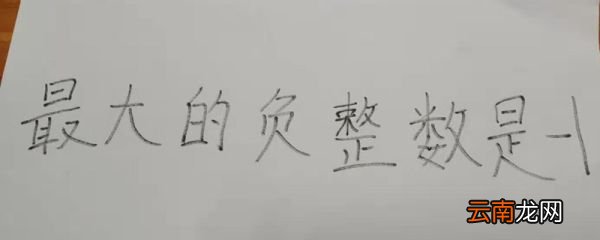 最大的负整数是-1
云南龙网